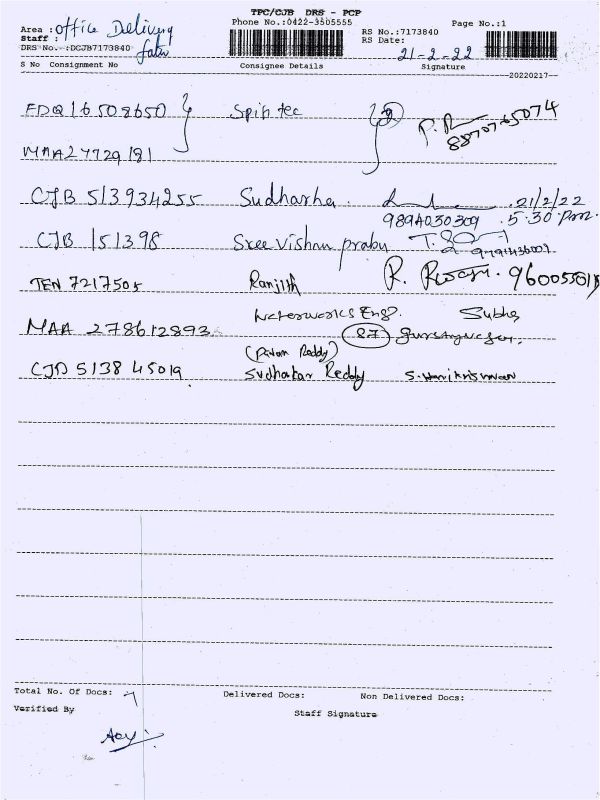 TPC/CJB DRS - PCP
Phone No.:0422-3505555 Page No.:1
Area : office Delivery
Staff :
DRS No. :DCJB7173840
RS No.:7173840
RS Date: 21-2-22
S No Consignment No Consignee Details Signature
20220217
FDQ16508650 Spintec 8870765074
MAA27729181
CJB 513934255 Sudharsha. 21/2/22
9894030309 5.30 pm.
CJB 151398 Sree Vishnu prabu
TEN 7217505 Ranjith
Waterworks Engg. Subha
MAA 278612893 87
(Pavan Reddy)
CJD 5138 45019 Sudhakar Reddy S. Harikrishnan
Total No. Of Docs: 7 Delivered Docs: Non Delivered Docs:
Verified By Staff Signature